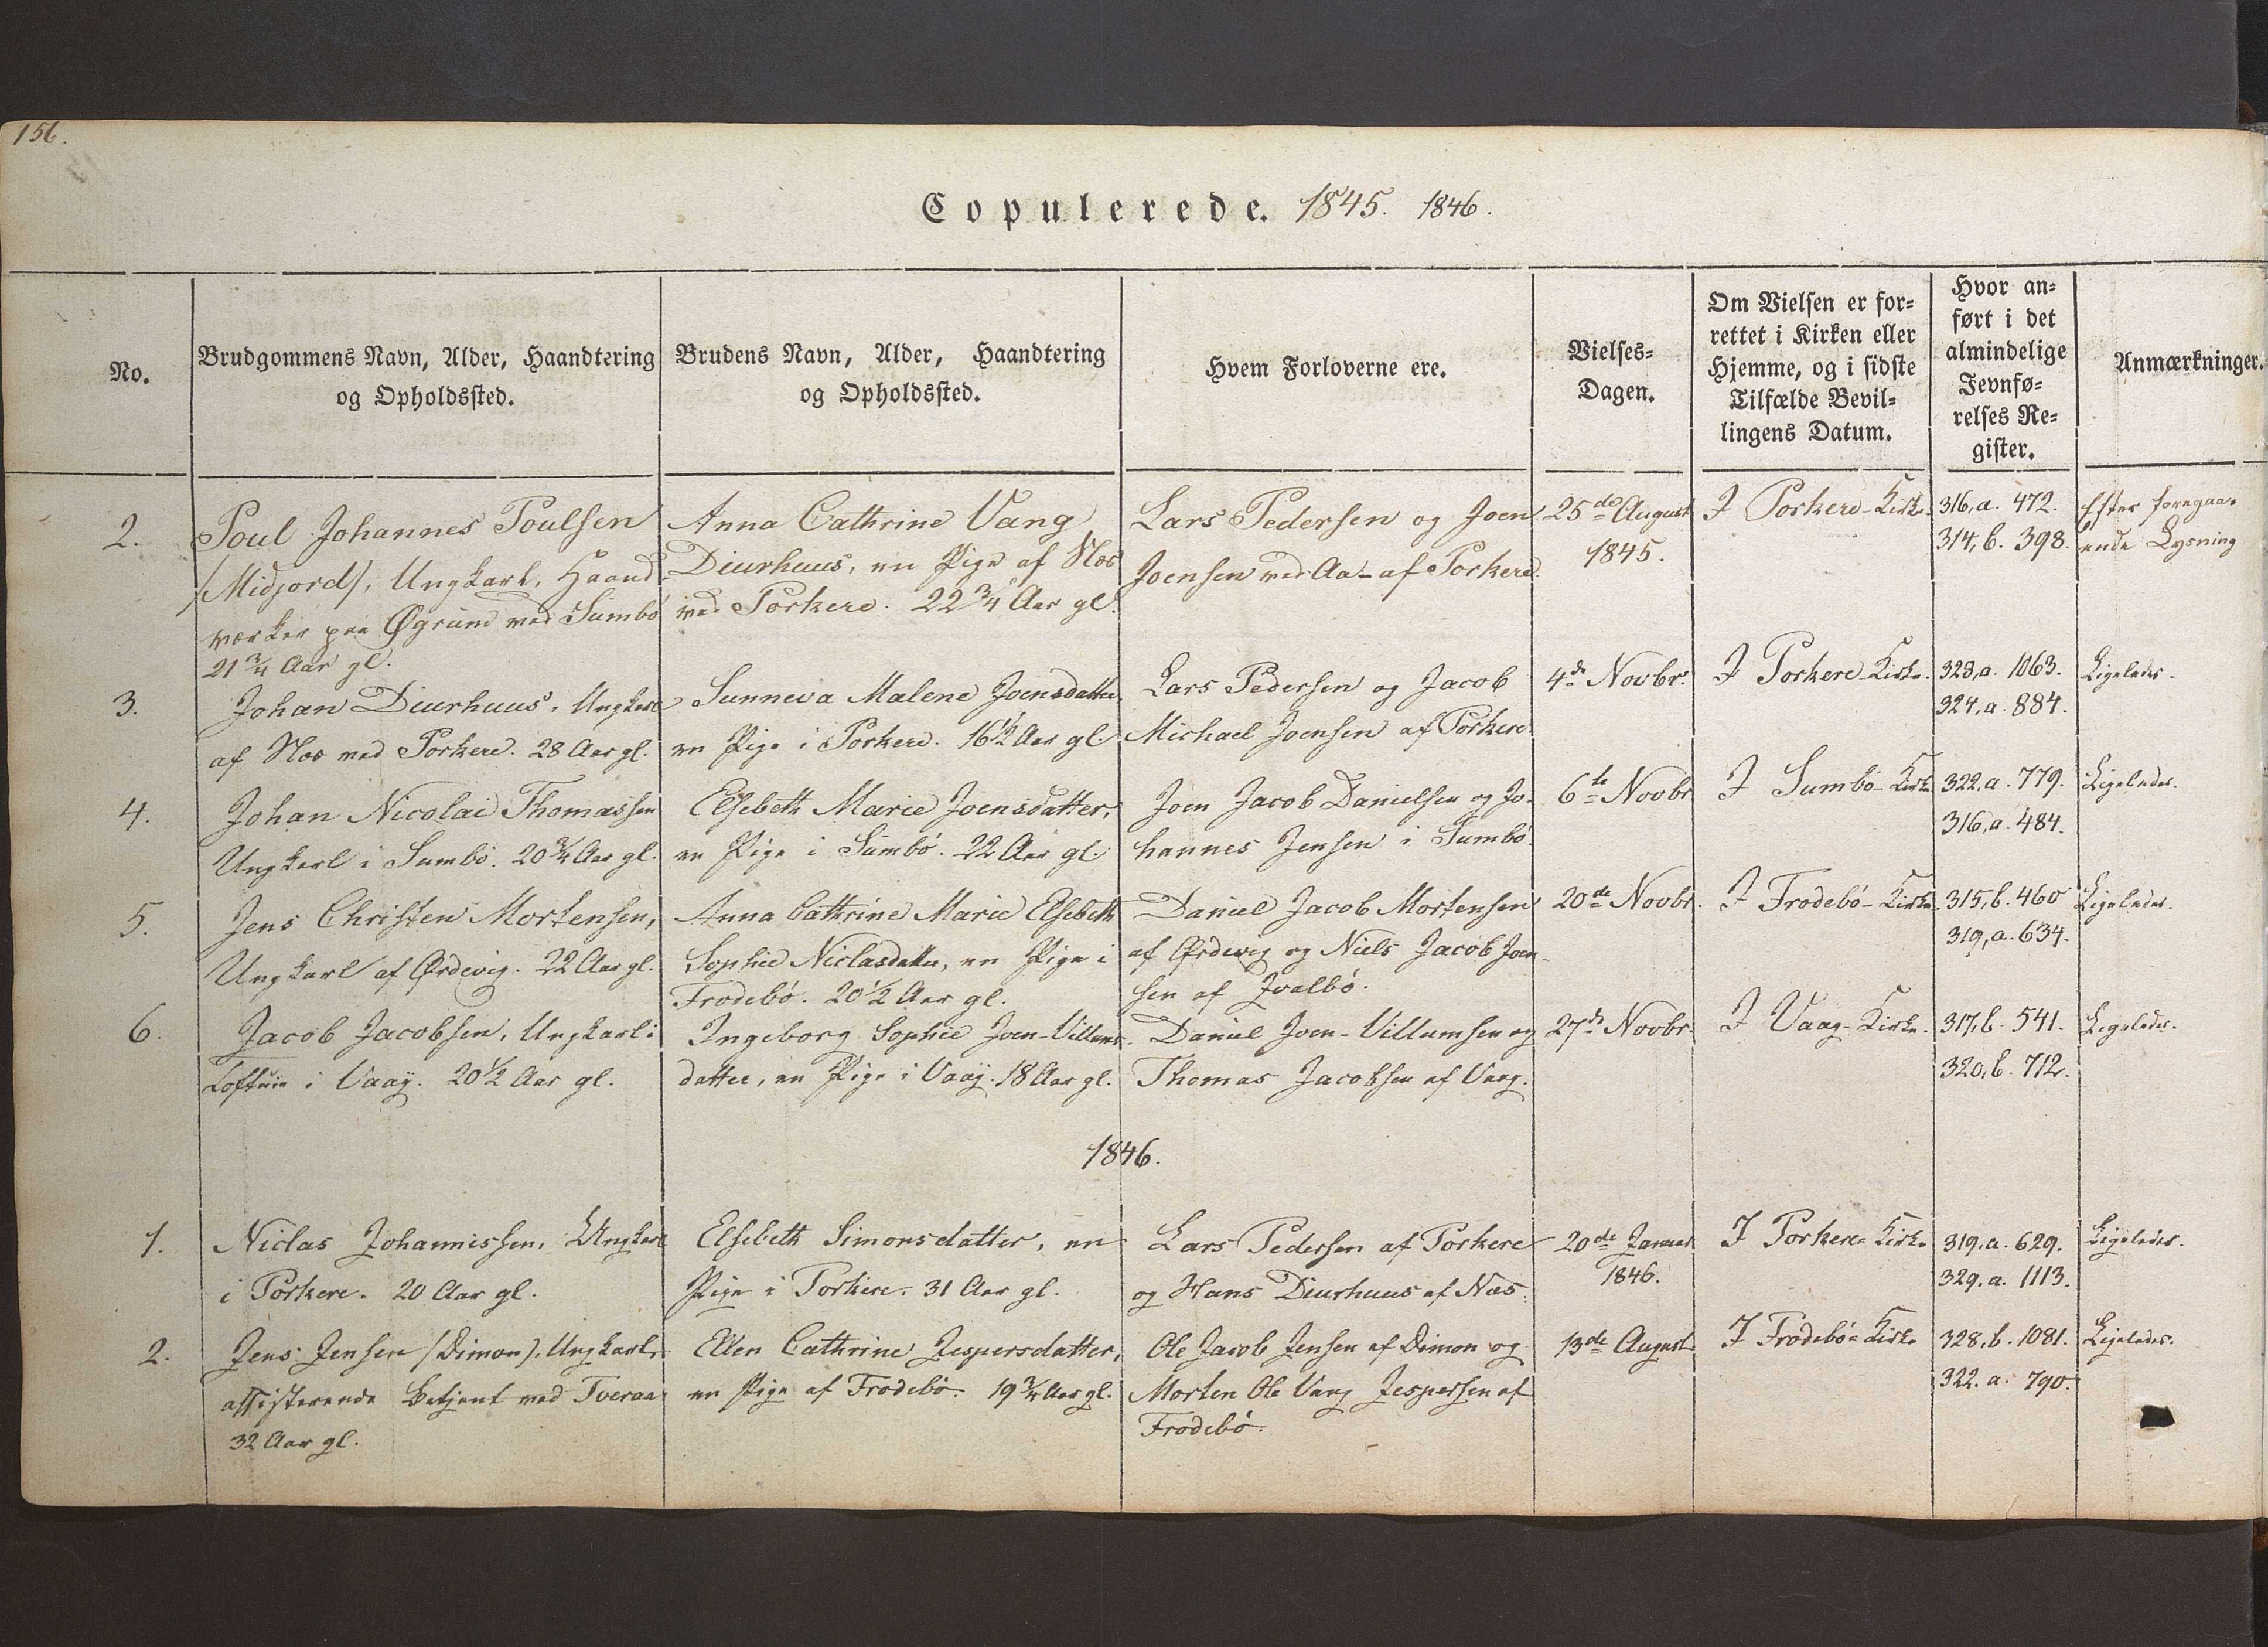 156.
Copulerede. 1845. 1846.
No.
Brudgommens Navn, Alder, Haandtering
og Opholdssted.
Brudens Navn, Alder, Haandtering
og Opholdssted.
Hvem Forloverne ere.
Vielses-
Dagen.
Om Vielsen er for-
rettet i Kirken eller
Hjemme, og i sidste
Tilfælde Bevil-
lingens Datum.
Hvor an-
ført i det
almindelige
Jevnfø-
relses Re-
gister.
Anmærkninger.
2.
Poul Johannes Poulsen
(Midjord), Ungkarl, Haand-
værker paa Øgrund ved Sumbø
21 3/4 Aar gl.
Anna Cathrine Vang
Diurhuus, en Pige af Næs
ved Porkere. 22 3/4 Aar gl.
Lars Pedersen og Joen
Joensen ved Aa af Porkere.
25de August
1845.
I Porkere-Kirke.
316, a. 472.
314, b. 398.
Efter foregaa-
ende Lysning
3.
Johan Diurhuus, Ungkarl
af Næs ved Porkere. 28 Aar gl.
Sunneva Malene Joensdatter
en Pige i Porkere. 16 1/2 Aar gl
Lars Pedersen og Jacob
Michael Joensen af Porkere.
4de Novbr.
I Porkere Kirke.
328, a. 1063.
324, a. 884.
Ligeledes.
4.
Johan Nicolai Thomassen
Ungkarl i Sumbø. 20 3/4 Aar gl.
Elsebeth Marie Joensdatter,
en Pige i Sumbø. 22 Aar gl.
Joen Jacob Danielsen og Jo-
hannes Jensen i Sumbø.
6te Novbr
I Sumbø-Kirke
322, a. 779.
316, a. 484.
Ligeledes.
5.
Jens Christen Mortensen,
Ungkarl af Ørdevig. 22 Aar gl.
Anna Cathrine Marie Elsebeth
Sophie Niclasdatter, en Pige i
Frodebø. 20 1/2 Aar gl.
Daniel Jacob Mortensen
af Ørdevig og Niels Jacob Joen-
sen af Hvalbø.
20de Novbr.
I Frodebø-Kirke.
315, b. 460
319, a. 634.
Ligeledes.
6.
Jacob Jacobsen, Ungkarl i
i Vaag. 20 1/2 Aar gl.
Ingeborg Sophie Joen-Villums-
datter, en Pige i Vaag. 18 Aar gl.
Daniel Joen-Villumsen og
Thomas Jacobsen af Vaag.
27de Novbr.
I Vaag-Kirke.
317, b. 541.
320, b. 712.
Ligeledes.
1846.
1.
Niclas Johannissen, Ungkarl
i Porkere. 20 Aar gl.
Elsebeth Simonsdatter, en
Pige i Porkere. 31 Aar gl.
Lars Pedersen af Porkere
og Hans Diurhuus af Næs.
20de Januar
1846.
I Porkere-Kirke
319. a. 629.
329. a. 1113.
Ligeledes.
2.
Jens Jensen (Dimon), Ungkarl,
assisterende Betjent ved Tveraa
32 Aar gl.
Ellen Cathrine Jespersdatter,
en Pige af Frodebø. 19 3/4 Aar gl.
Ole Jacob Jensen af Dimon og
Morten Ole Vang Jespersen af
Frodebø.
13de August
I Frodebø-Kirke
328, b. 1081.
322. a. 790.
Ligeledes.